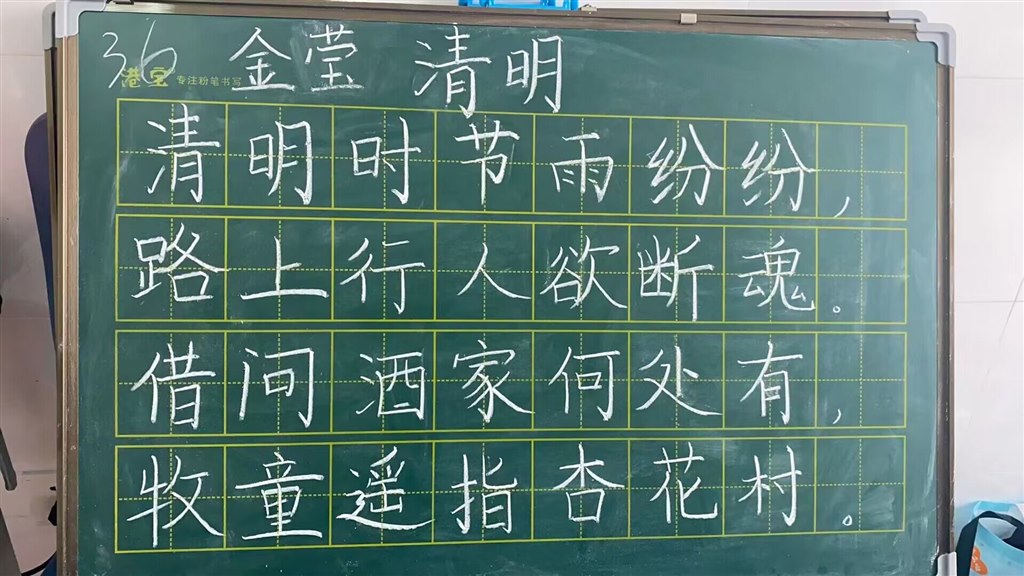 36 金莹 清明
港宝 专注粉笔书写
清明时节雨纷纷，
路上行人欲断魂。
借问酒家何处有，
牧童遥指杏花村。